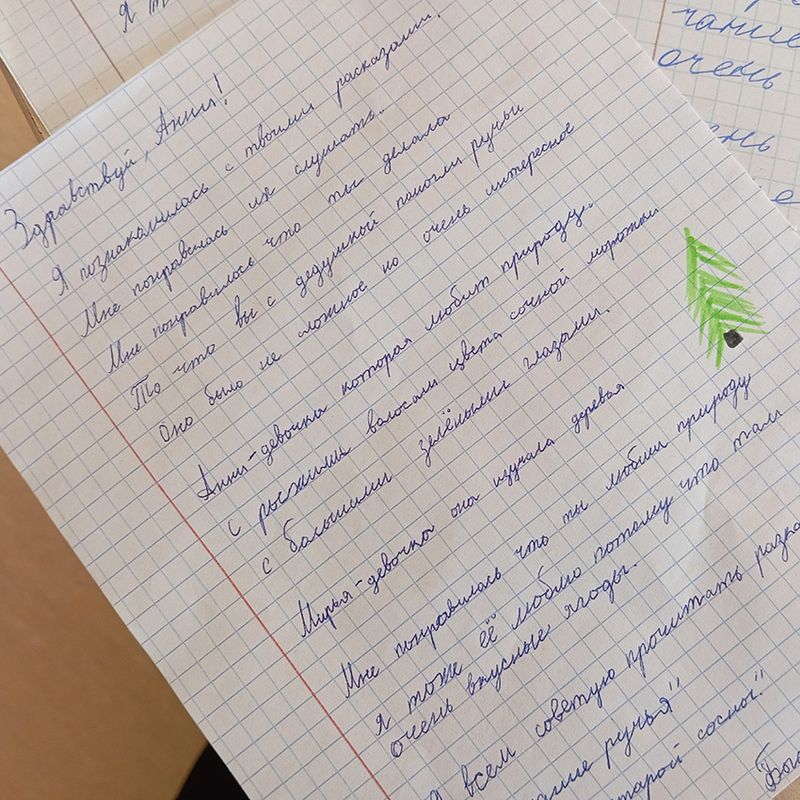 Я т
чание
очень
ень
е
Здравствуй, Анни!
Я познакомилась с твоими расказами.
Мне понравилась их слушать.
Мне понравилось что ты делала
То что вы с дедушкой помогли ручьи
Оно было не сложное но очень интересное
Анни-девочка которая любит природу.
с рыжими волосами цвета сочной морожки
с большими зелёными глазами.
Мирья-девочка она изучала деревья
Мне понравилась что ты любиш природу
я тоже её люблю потому что там
очень вкусные ягоды.
Я всем советую прочитать разка
ание ручья"
тарой сосной."